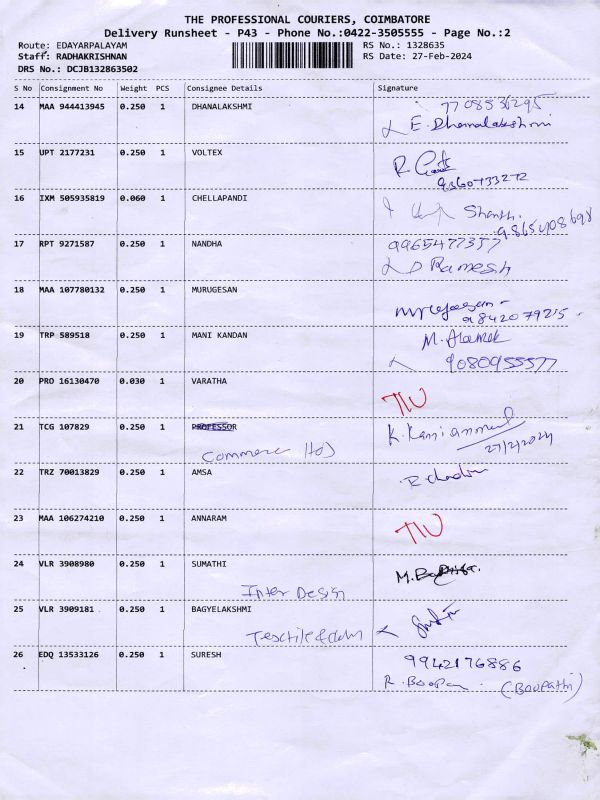 THE PROFESSIONAL COURIERS, COIMBATORE
Delivery Runsheet - P43 - Phone No.:0422-3505555 - Page No.:2
Route: EDAYARPALAYAM RS No.: 1328635
Staff: RADHAKRISHNAN RS Date: 27-Feb-2024
DRS No.: DCJB132863502
S No Consignment No Weight PCS Consignee Details Signature
14 MAA 944413945 0.250 1 DHANALAKSHMI 7708536295
E. Dhanalakshmi
15 UPT 2177231 0.250 1 VOLTEX R.
9360733272
16 IXM 505935819 0.060 1 CHELLAPANDI Shanthi
17 RPT 9271587 0.250 1 NANDHA 9965477357
D Ramesh
18 MAA 107780132 0.250 1 MURUGESAN
9842079215
19 TRP 589518 0.250 1 MANI KANDAN M.
9080955577
20 PRO 16130470 0.030 1 VARATHA
21 TCG 107829 0.250 1 PROFESSOR K. Kaniammal
Commerce 27/2/2024
22 TRZ 70013829 0.250 1 AMSA
23 MAA 106274210 0.250 1 ANNARAM
24 VLR 3908980 0.250 1 SUMATHI M.
Inter Design
25 VLR 3909181 0.250 1 BAGYELAKSHMI
26 EDQ 13533126 0.250 1 SURESH 9942176886
R. Boopa (Boopathi)